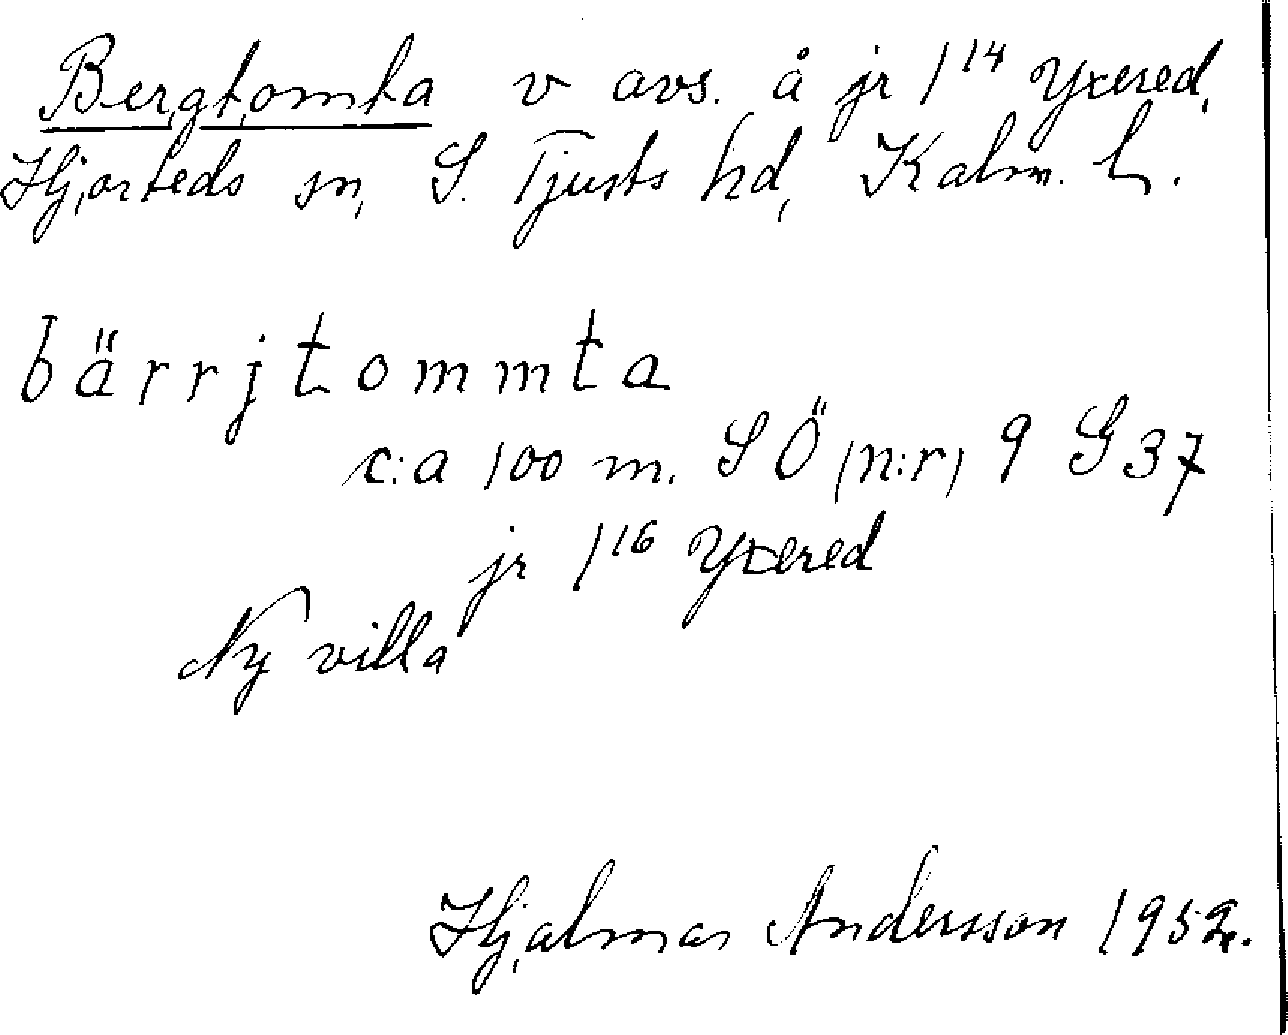 Bergtomta v avs. å jr 1¹⁴ Yxered,
Hjorteds sn, S. Tjusts hd, Kalm. l.
bärrjtommta
c:a 100 m. SÖ (n:r) 9 G37
jr 1¹⁶ Yxered
Ny villa
Hjalmar Andersson 1952.